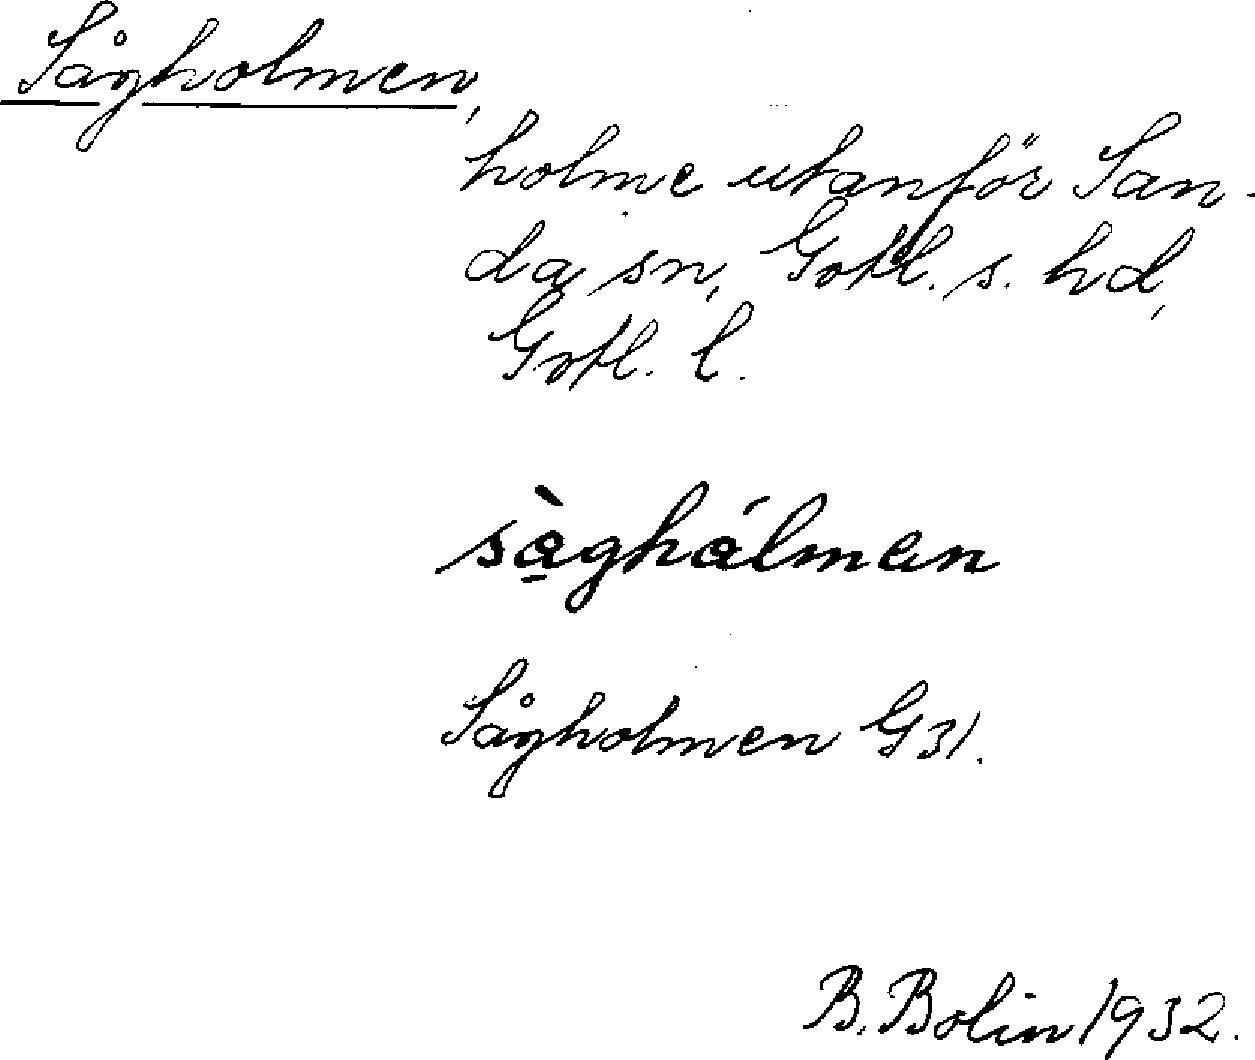 Sågholmen,
holme utanför San-
da sn, Gotl. s. hd,
Gotl. l.
sà̱ghálmen
Sågholmen G31.
B. Bolin 1932.